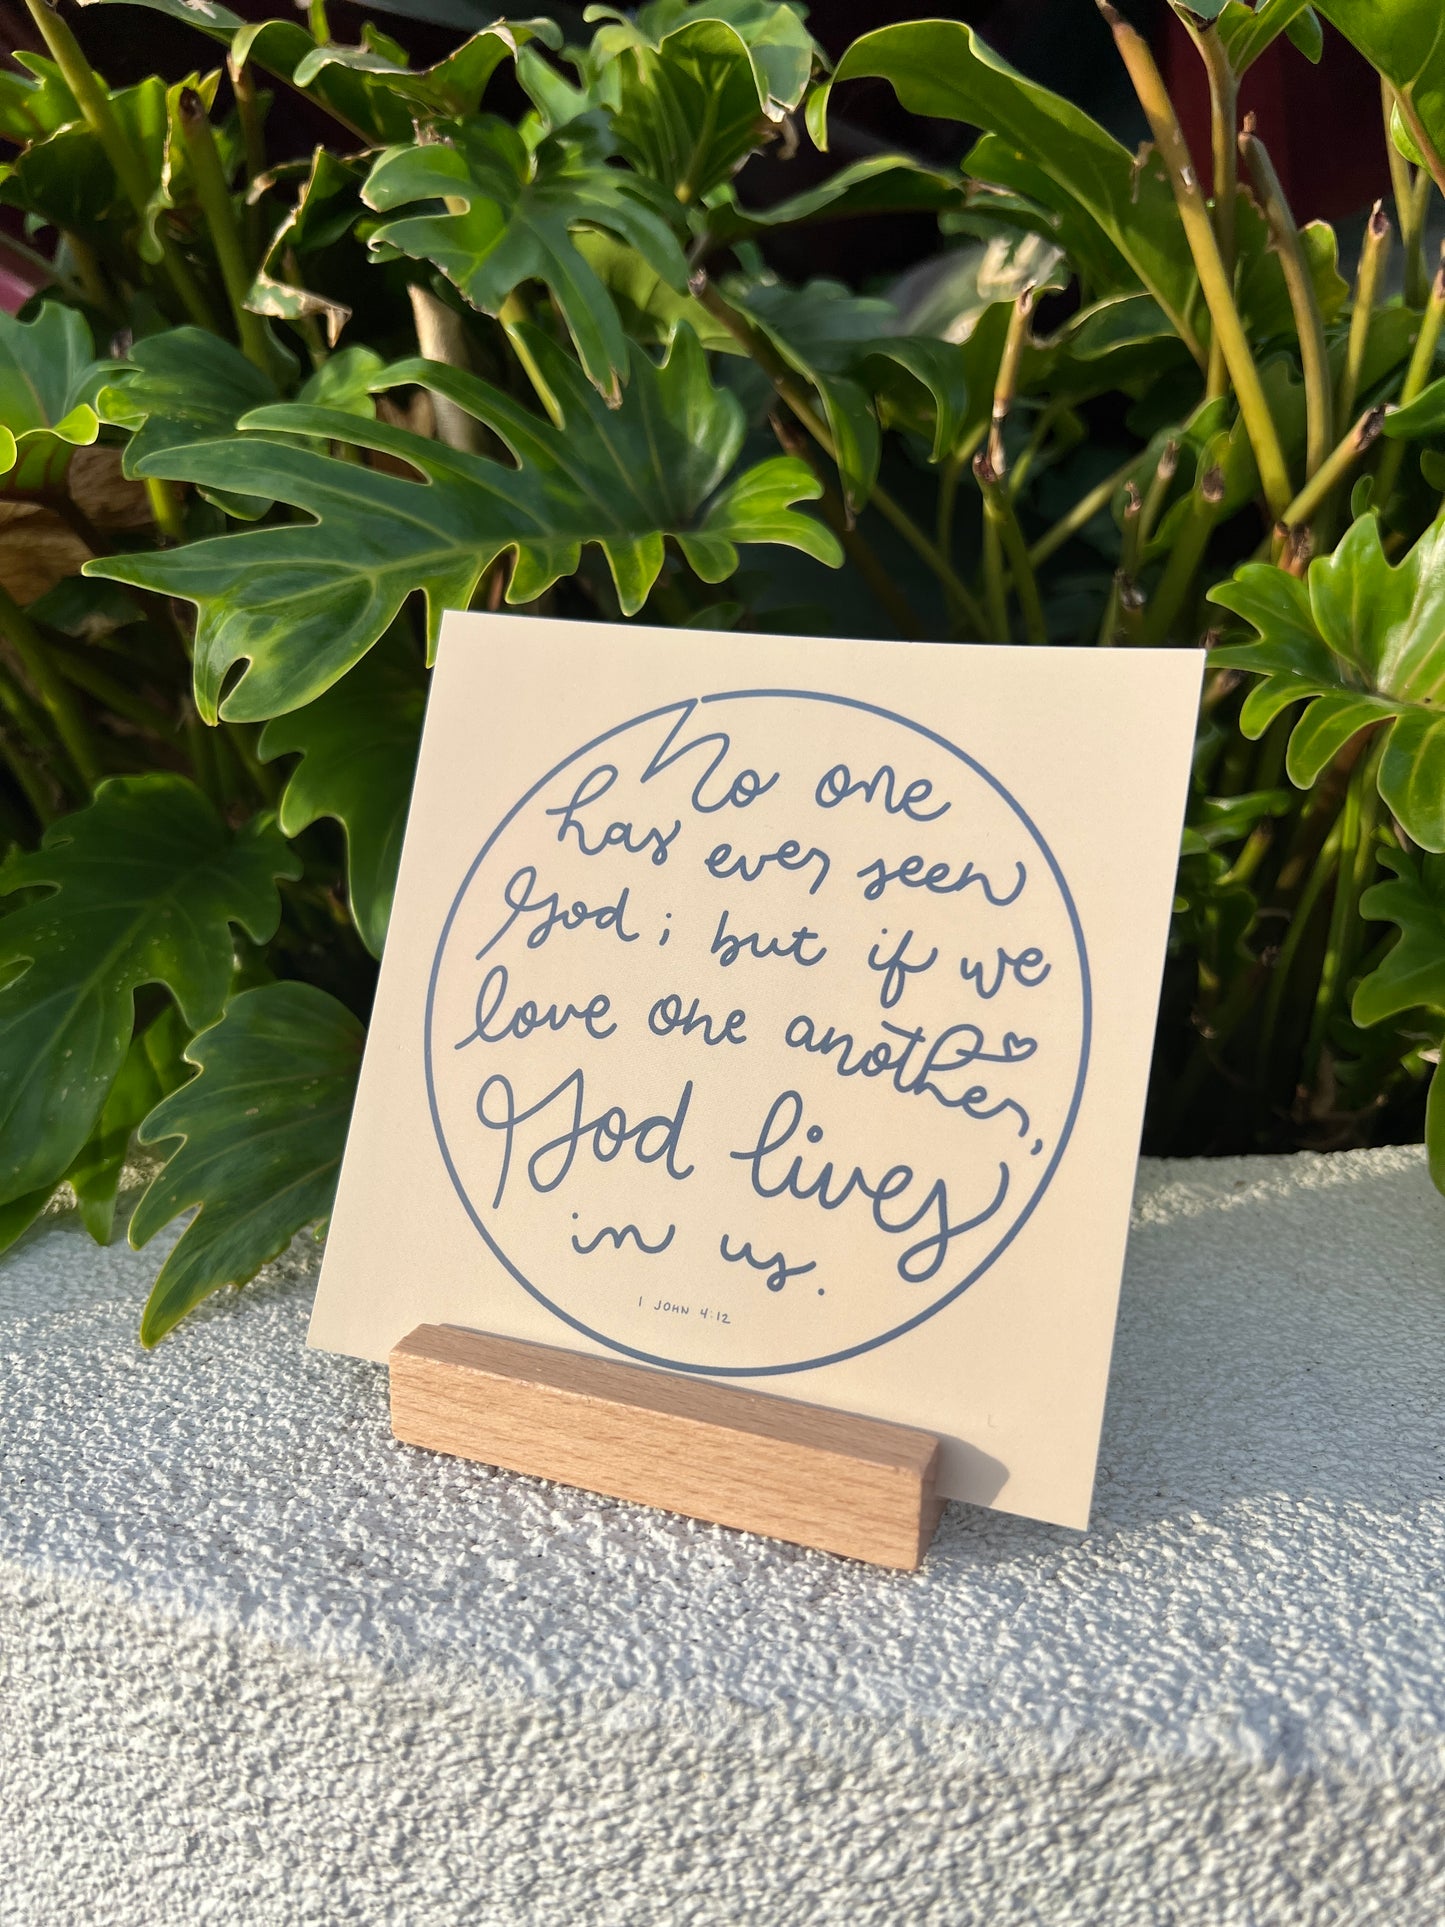 No one
has ever seen
God; but if we
love one another,
God lives
in us.
1 JOHN 4:12